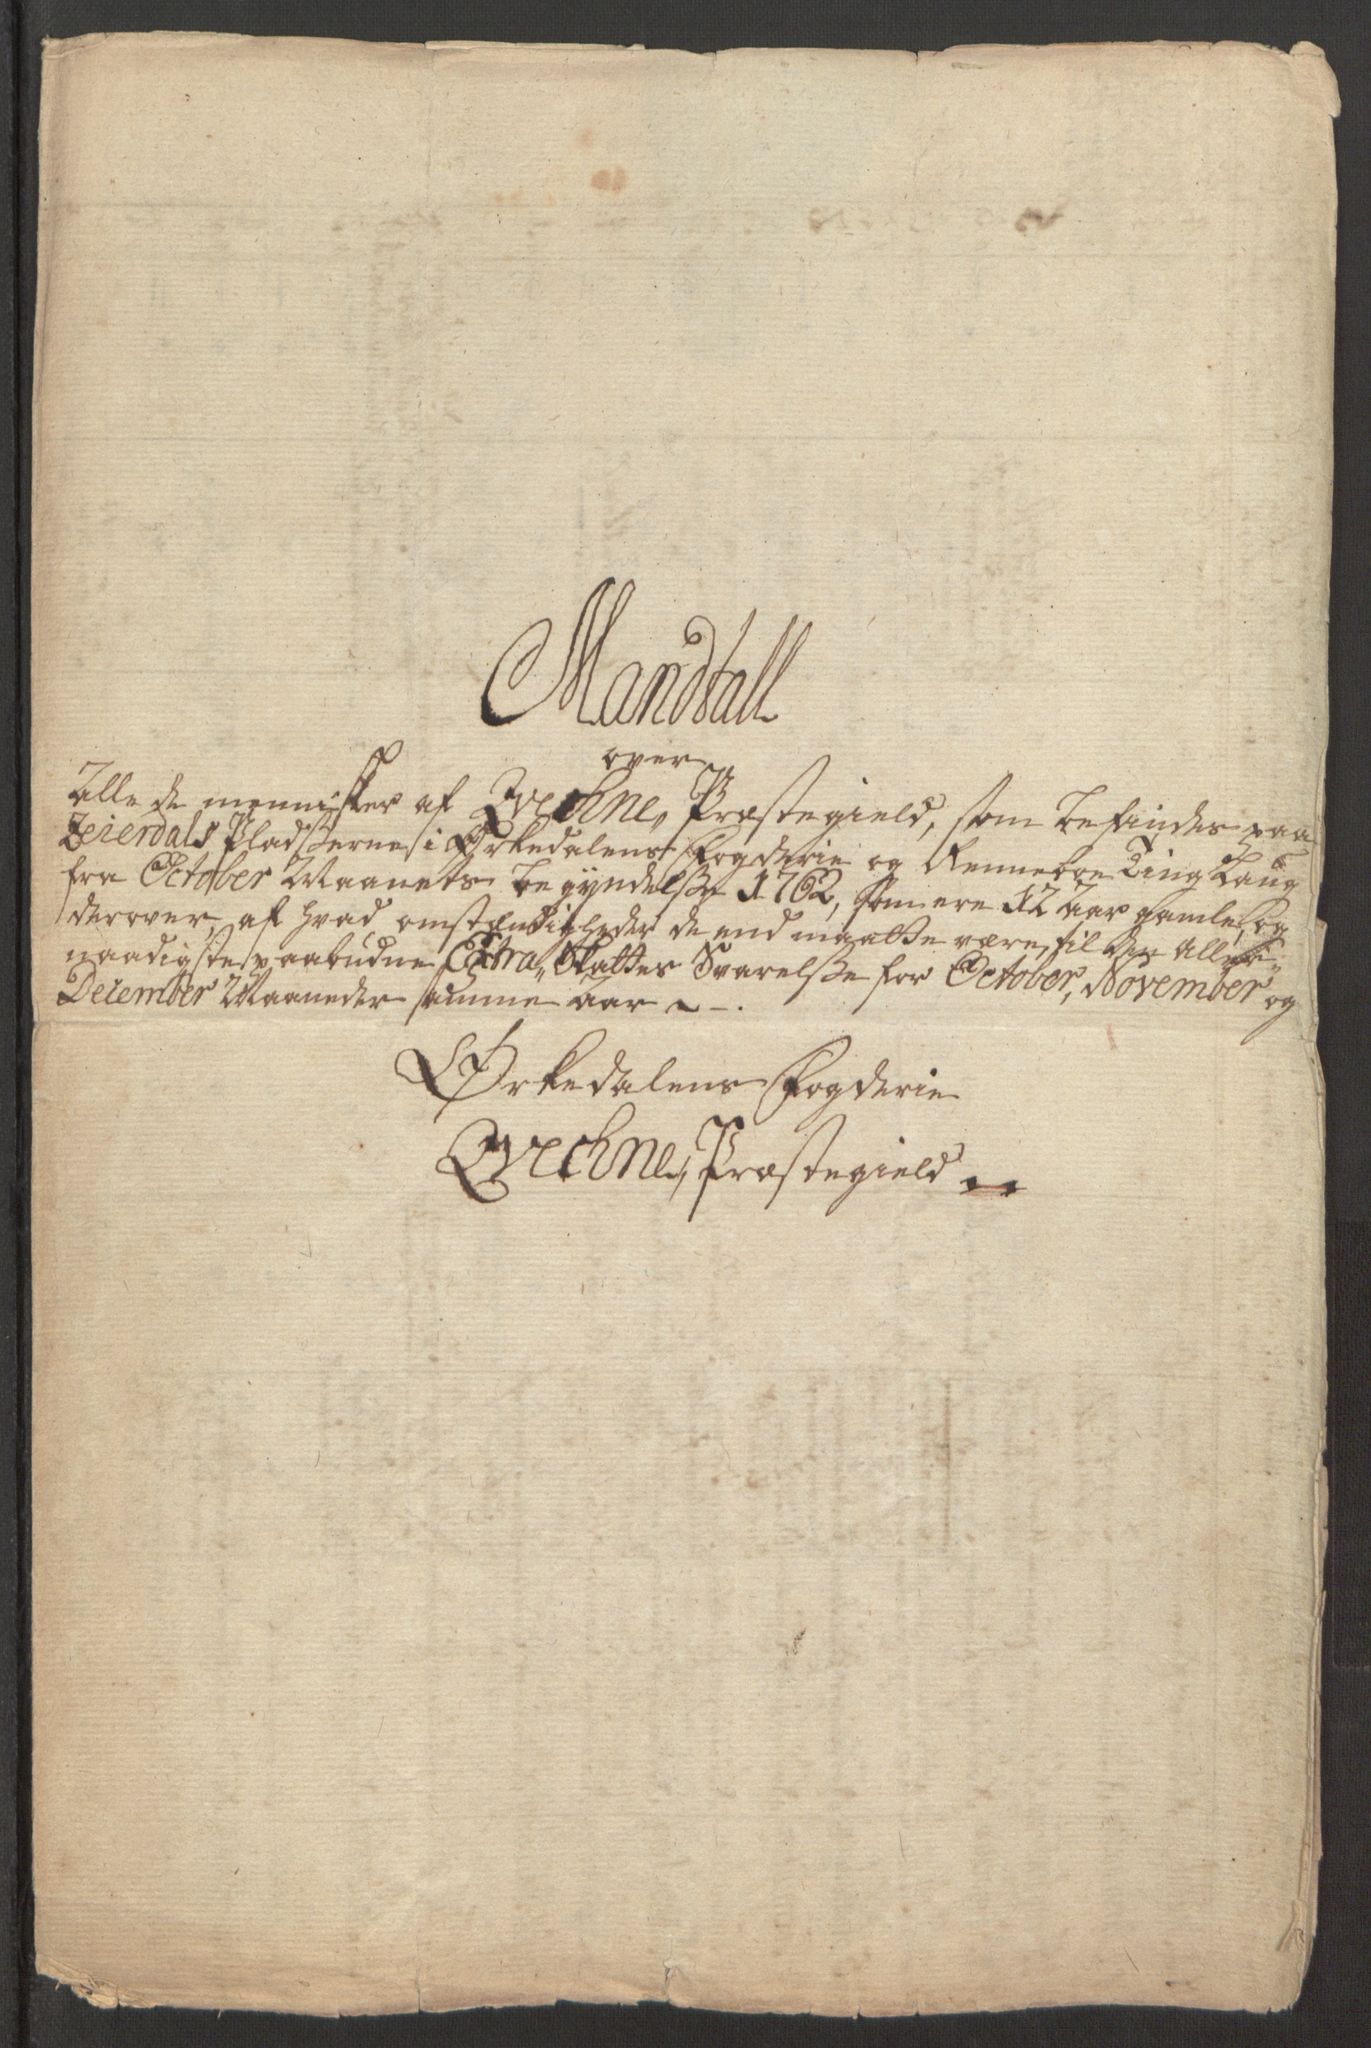 Mandtall
over
Alle de mennisker af Qvichne, Præstegield, som befindes paa
Leierdals Pladsserne i Ørkedalens Fogderie og Renneboe Ting Laug
fra October Maanets begÿndelsse 1762, som ere 12 Aar gamle, og
derover, af hvad omstændigheder de end maatte være, til den Aller„
naadigste paabudne Extra„ Skattes Svarelsse for October, November og
December Maaneder samme Aar
Ørkedalens Fogderie
Qvichne, Præstegield